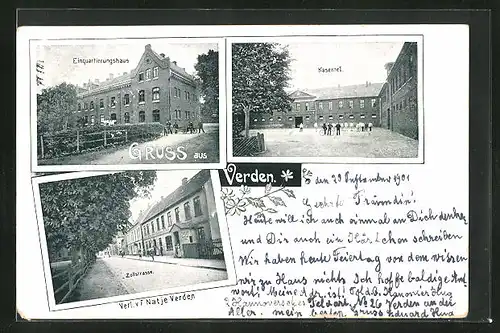 Einquartirungshaus
Kaserne I.
GRUSS aus
Verden.
Zollstrasse.
Verl. v. F. Natje Verden
den 29 September 1901
Geehrte Freundin!
Heute will ich auch einmal an Dich denken
und Dir auch ein Kärtchen schreiben
Wir haben heute Feiertag vor dem wissen
wir zu Haus nichts Ich hoffe baldige Ant
wort, Meine Adr. ist! Feldb. Kanonier
Hannoversches Feldart. No 26 Verden an der
Aller. mein besten Gruss Eduard